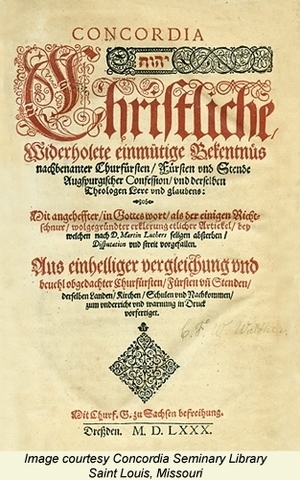 CONCORDIA
יהוה
Christliche/
Widerholete einmütige Bekentnüs
nachbenanter Churfürsten / Fürsten vnd Stende
Augspurgischer Confession / vnd derselben
Theologen Lere vnd glaubens:
Mit angeheffter / in Gottes wort / als der einigen Richt-
schnur / wolgegründter erklerung etlicher Artickel / bey
welchen nach D. Martin Luthers seligen absterben /
Disputation vnd streit vorgefallen.
Aus einhelliger vergleichung vnd
beuehl obgedachter Churfürsten / Fürsten vñ Stenden /
derselben Landen / Kirchen / Schulen vnd Nachkommen /
zum vnderricht vnd warnung in Druck
vorfertiget.
C. F. W. Walther
Mit Churf. G. zu Sachsen befreihung.
Dreßden. M. D. LXXX.
Image courtesy Concordia Seminary Library
Saint Louis, Missouri